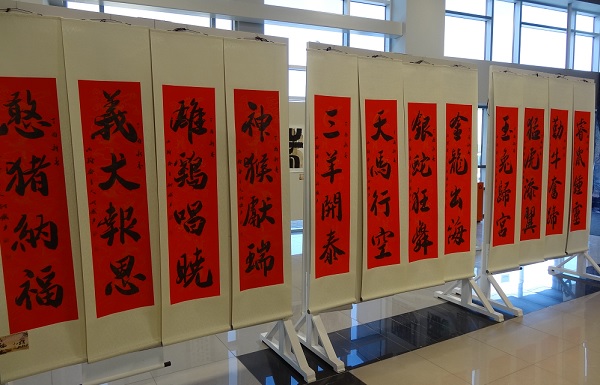 勤牛奮蹄
猛虎添翼
玉兔歸宮
金龍出海
銀蛇狂舞
天馬行空
三羊開泰
神猴獻瑞
雄鷄唱曉
義犬報恩
憨猪納福